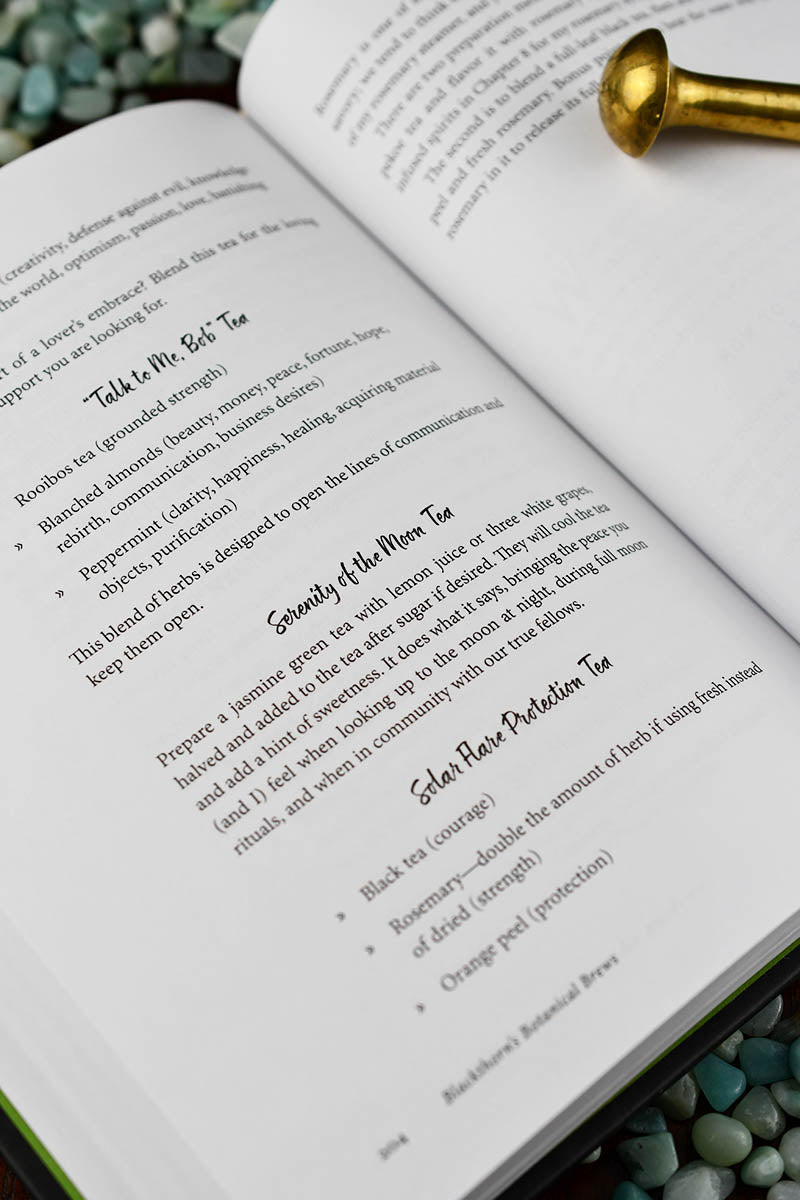 (creativity, defense against evil, knowledge
the world, optimism, passion, love, banishing
rt of a lover's embrace? Blend this tea for the loving
upport you are looking for.
"Talk to Me, Bob" Tea
Rooibos tea (grounded strength)
» Blanched almonds (beauty, money, peace, fortune, hope,
rebirth, communication, business desires)
» Peppermint (clarity, happiness, healing, acquiring material
objects, purification)
This blend of herbs is designed to open the lines of communication and
keep them open.
Serenity of the Moon Tea
Prepare a jasmine green tea with lemon juice or three white grapes,
halved and added to the tea after sugar if desired. They will cool the tea
and add a hint of sweetness. It does what it says, bringing the peace you
(and I) feel when looking up to the moon at night, during full moon
rituals, and when in community with our true fellows.
Solar Flare Protection Tea
» Black tea (courage)
» Rosemary—double the amount of herb if using fresh instead
of dried (strength)
» Orange peel (protection)
Blackthorn's Botanical Brews
Rosemary is one of
savory; we tend to think
of my rosemary steamer, and
There are two preparation
pekoe tea and flavor it with rosemary
infused spirits in Chapter 8 for my rosemary
The second is to blend a full-leaf black tea
peel and fresh rosemary. Bonus
rosemary in it to release its full